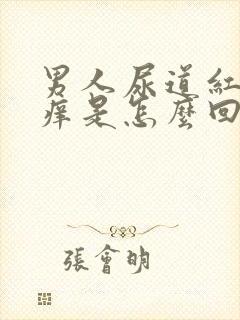 男人尿道紅
痒是怎麼回
張會明